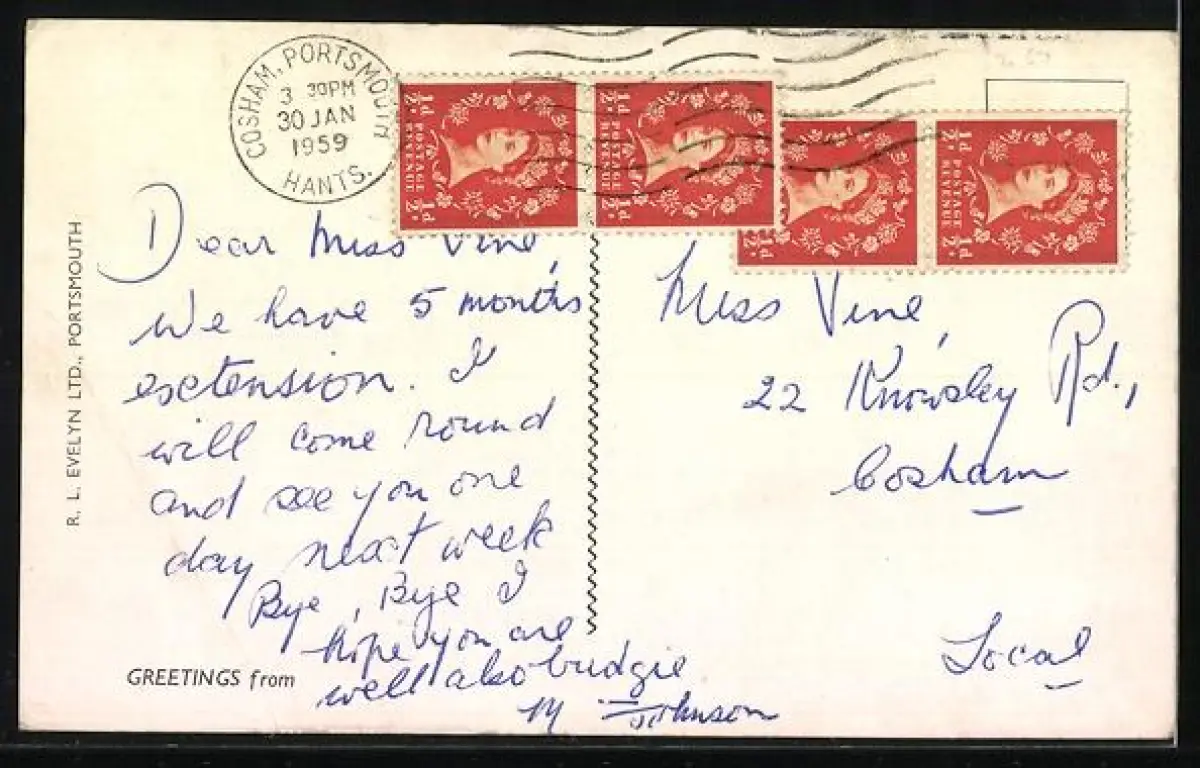 COSHAM, PORTSMOUTH
3 30PM
30 JAN
1959
HANTS.
½d. POSTAGE REVENUE ½d.
½d. POSTAGE REVENUE ½d.
½d.
½d. POSTAGE REVENUE ½d.
R. L. EVELYN LTD., PORTSMOUTH
Dear Miss Vine,
We have 5 months
extension. I
will come round
and see you one
day next week
Bye, Bye I
hope you are
well also budgie
M Johnson
GREETINGS from
Miss Vine,
22 Knowsley Rd.,
Cosham
Local